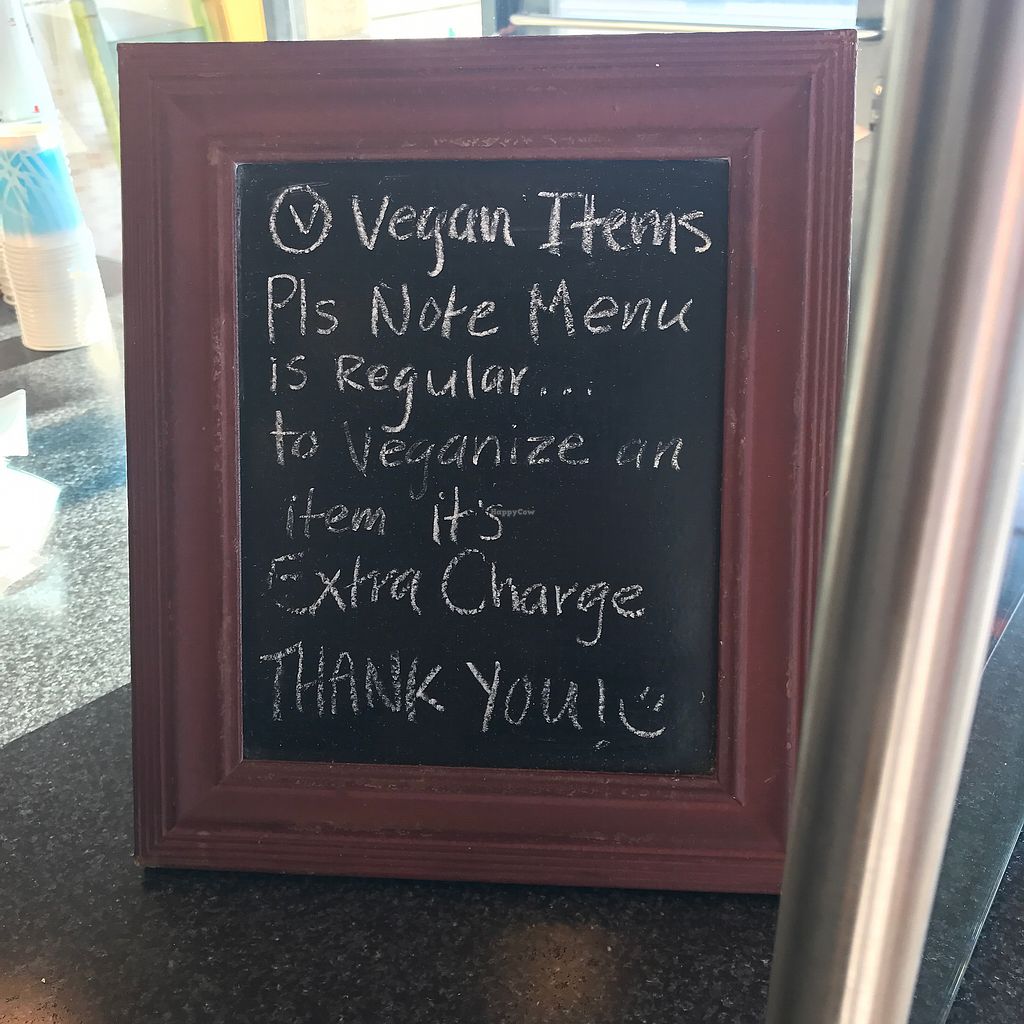 V Vegan Items
Pls Note Menu
is Regular...
to Veganize an
item it's
HappyCow
Extra Charge
THANK YOU!